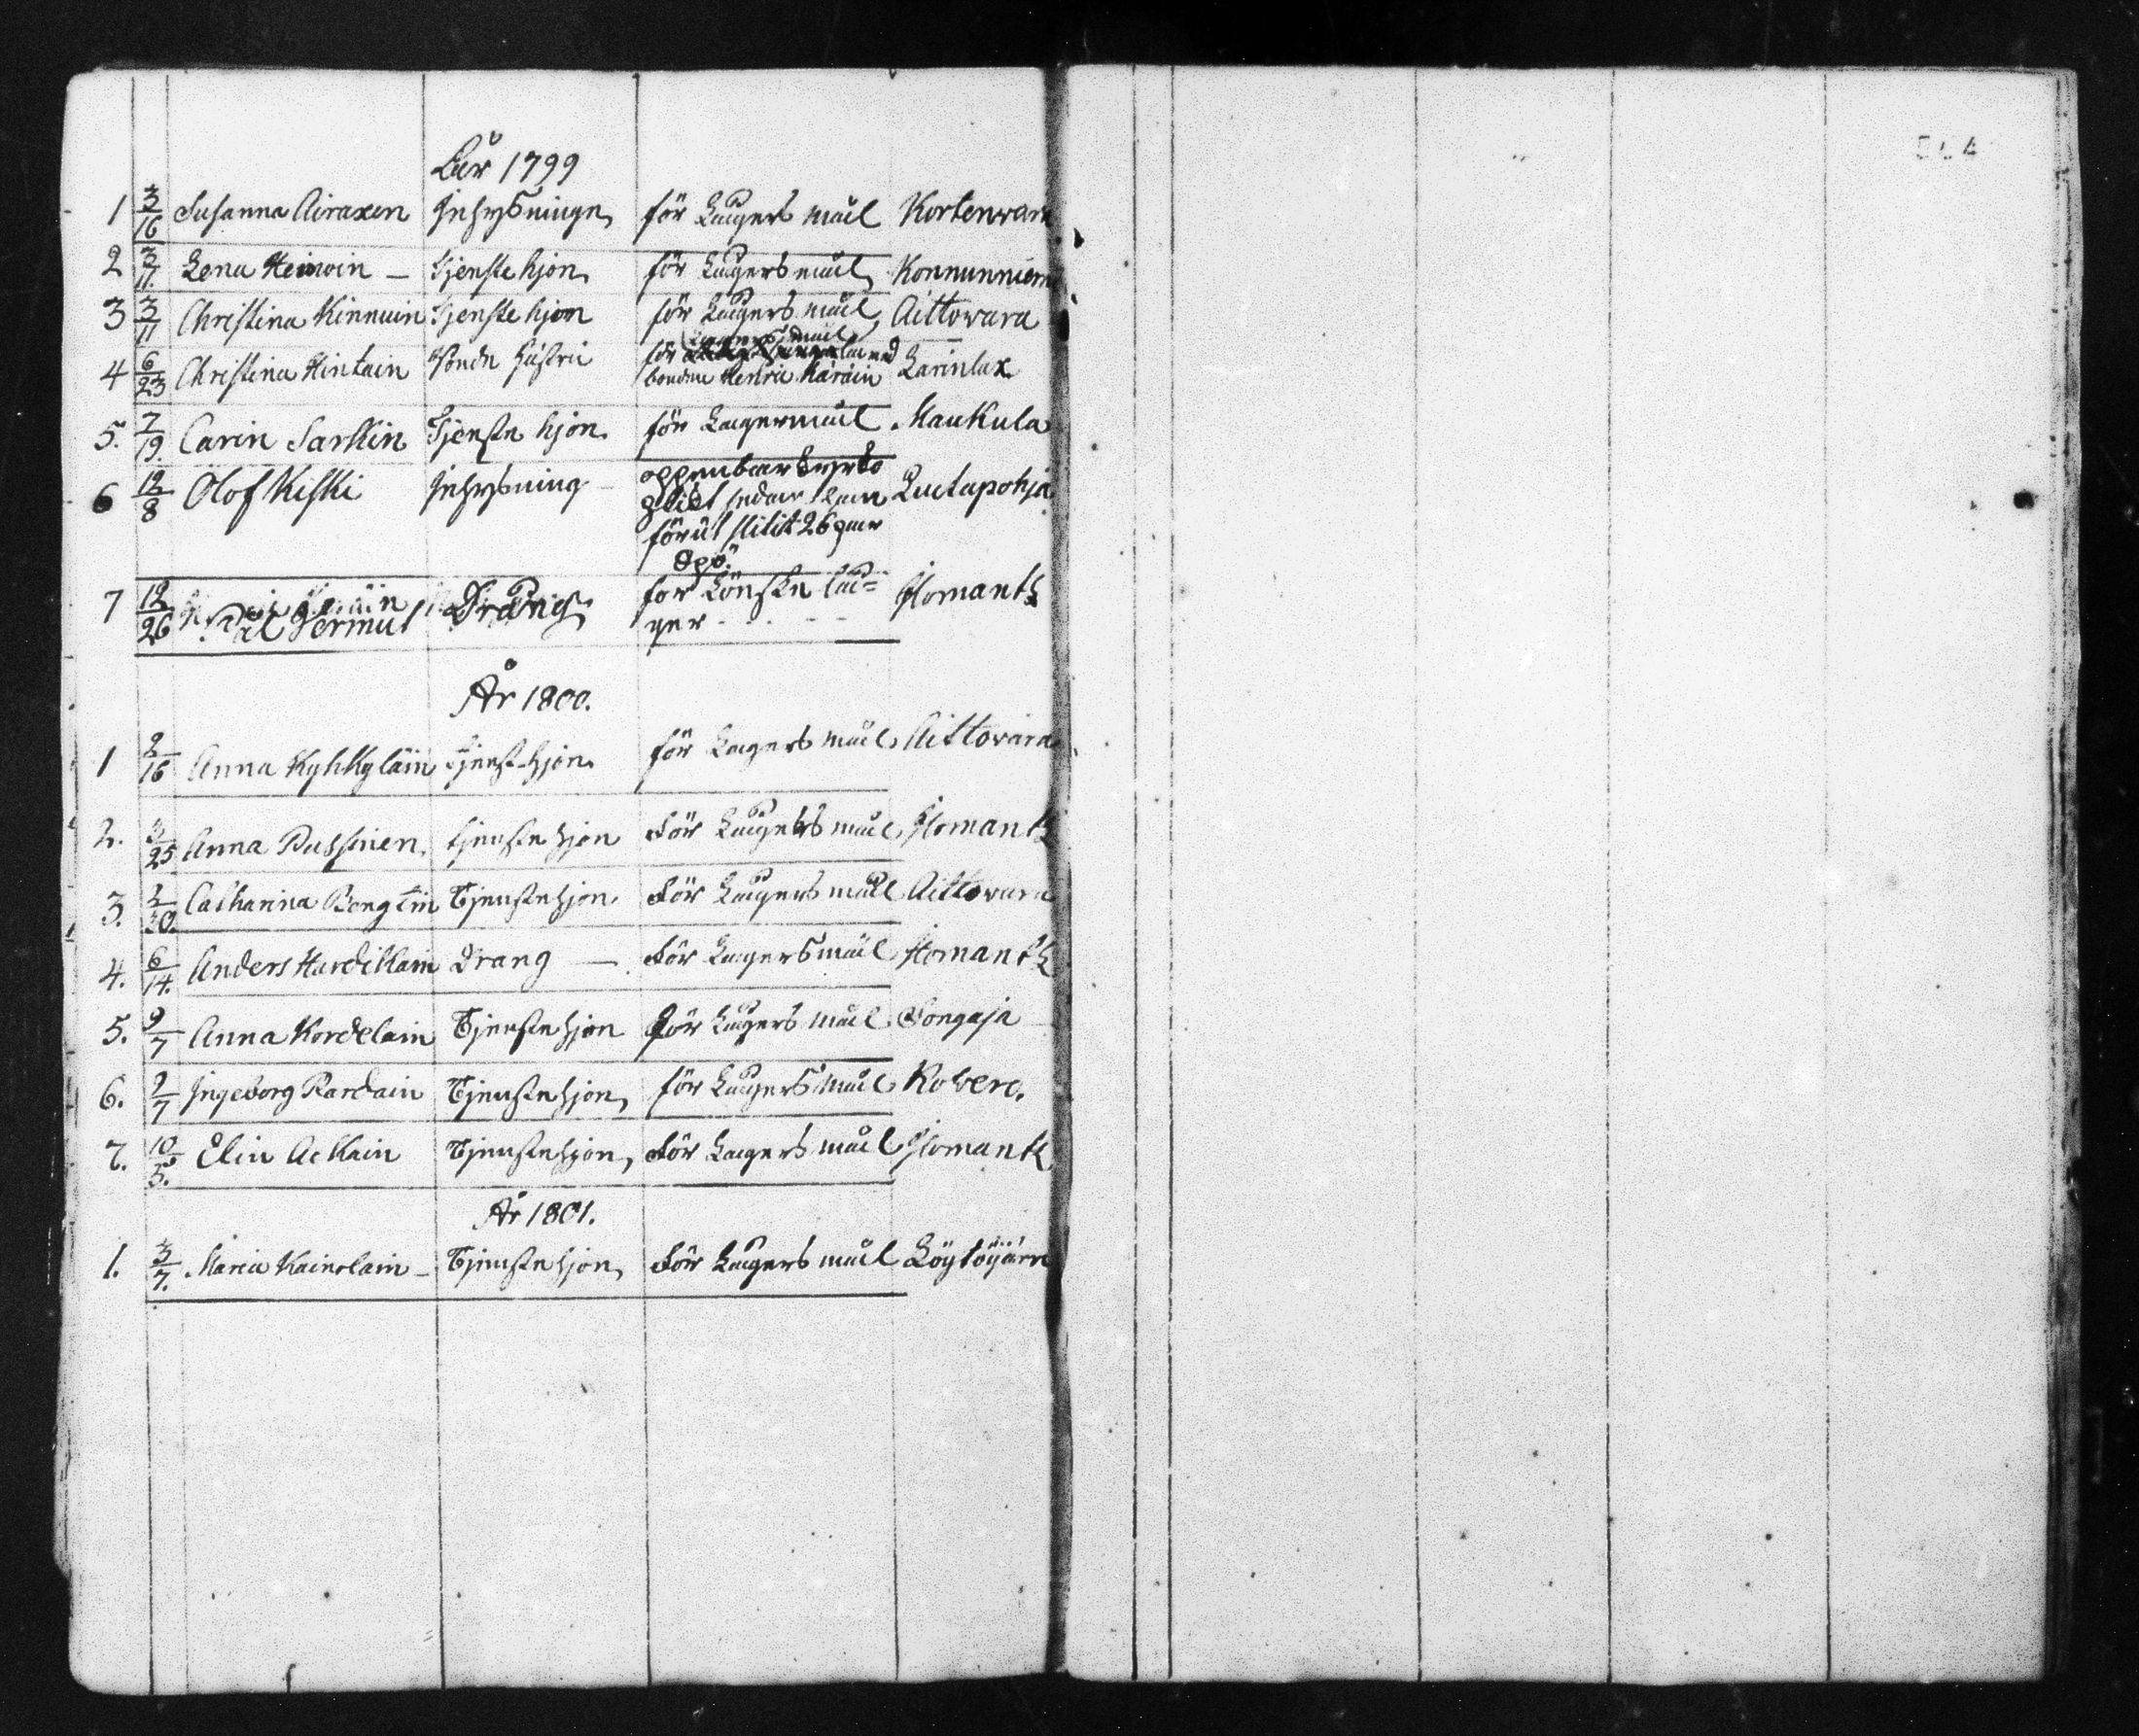 År 1799
1 3/16 Susanna Airaxen Inhysninge för Lägers mål Kortenwara
2 3/11. Lena Heiwoin — Tjenstehjon för Lägersmål Konnunniem
3 3/11 Christina Kinnuin Tjenstehjon för Lägers mål Aittowara
4 6/23 Christina Hintain bonde hustru för Lägersmål med
bonden Henric Käräin Larinlax
5. 7/19. Carin Sarkin Tjenste hjon för Lägermål Maukula
6 12/8 Olof Kiski Inhysning oppenbar
sedan han Luutapohja
förut slitit 26 par
spö.
7 12/26 Pål Dräng för Lönska lä=
ger - - - - Ilomants
År 1800.
1 2/16 Anna Kyhkyläin tjensthjon för Lägers mål Aittovara
2. 3/25 Anna Pussinen tjenstehjon för Lägers mål Ilomants
3. 2/30. Catharina Bengtin Tjenstehjon för Lägers mål Aittovara
4. 6/14. Anders Hardillain Dräng — för Lägersmål Ilomants
5. 9/7 Anna Kordelain Tjenstehjon för Lägers mål Songaja
6. 9/7 Ingeborg Pardain Tjenstehjon för Lägers mål Kovero.
7. 10/5. Elin Ackain Tjenstehjon, för Lägers mål Ilomants
År 1801.
1. 3/7. Maria Kainolain — Tjenstehjon för Lägers mål Löytöjärv